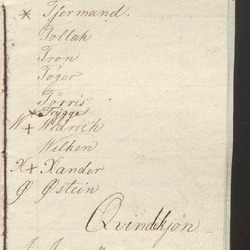 × Tjermand.
Tollak
Tron
Töger
Törris
× Trygge
W + Widrich
Wilken
X + Xander
Ø Østein
Qvindekjön